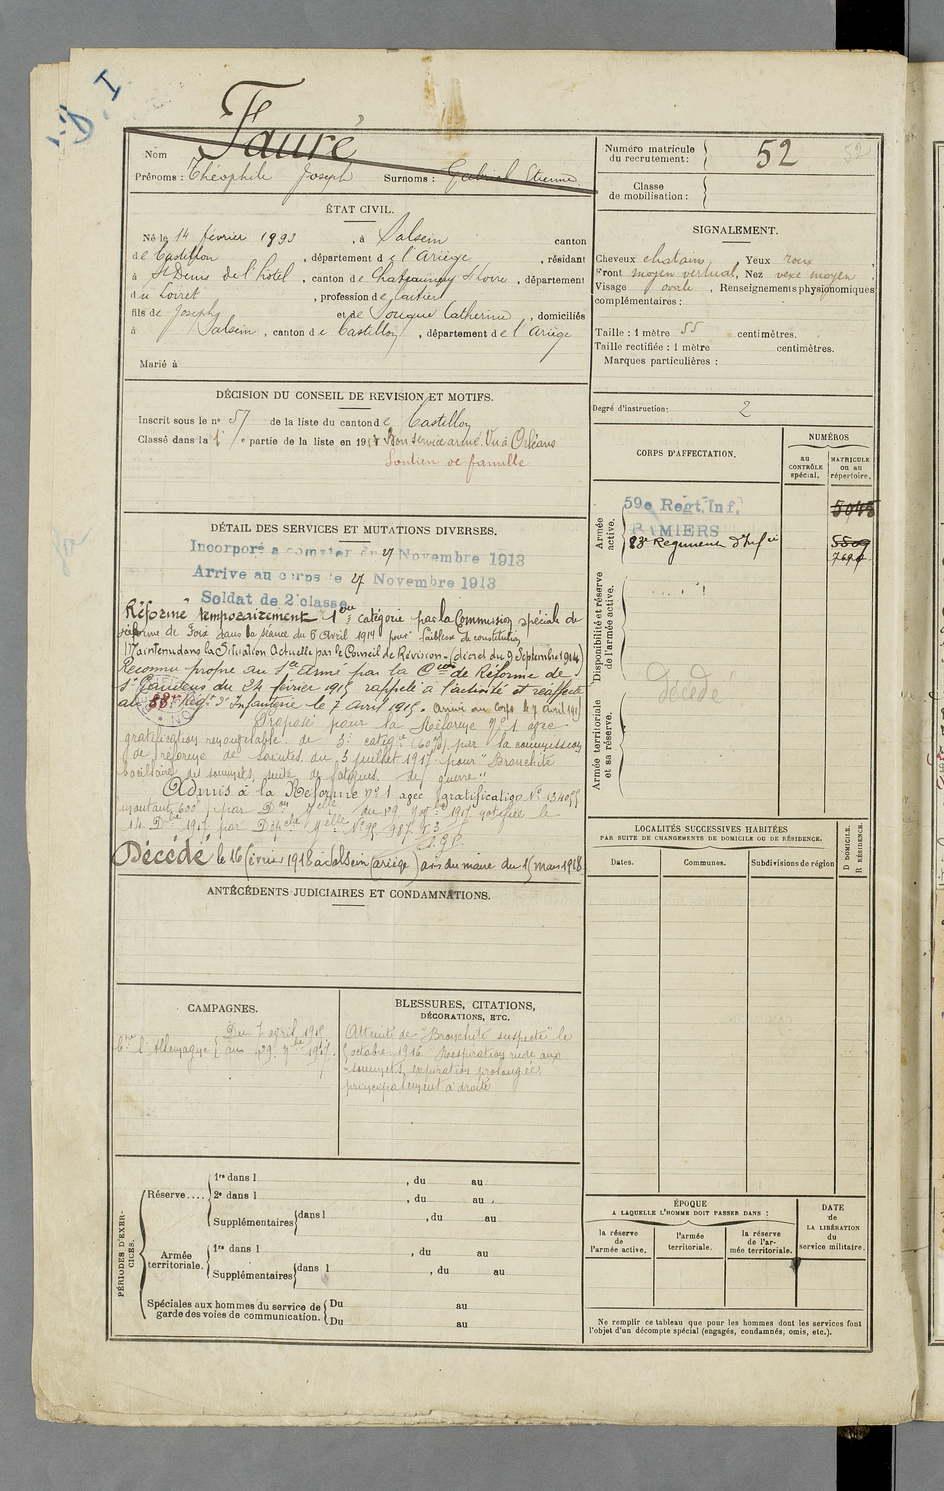 I
Fauré
Nom
Prénoms : Théophile Joseph Surnoms : Gabriel Etienne
Numéro matricule du recrutement : 52
52
Classe de mobilisation :
ÉTAT CIVIL.
Né le 14 février 1893, à Salsein canton
de Castillon, département de l'Ariège, résidant
à St Denis de l'hôtel, canton de Chateauneuf s/ Loire, département
du Loiret, profession de
fils de Joseph et de Souque Catherine, domiciliés
à Salsein, canton de Castillon, département de l'Ariège
Marié à
SIGNALEMENT.
Cheveux chatains, Yeux roux,
Front moyen vertical, Nez vexe moyen,
Visage ovale, Renseignements physionomiques
complémentaires :
Taille : 1 mètre 55 centimètres.
Taille rectifiée : 1 mètre centimètres.
Marques particulières :
Degré d'instruction : 2
DÉCISION DU CONSEIL DE REVISION ET MOTIFS.
Inscrit sous le n° 57 de la liste du canton de Castillon
Classé dans la 1e partie de la liste en 1913 Bon service armé. Vu à Orléans
Soutien de famille
DÉTAIL DES SERVICES ET MUTATIONS DIVERSES.
Incorporé à compter du 27 Novembre 1913
Arrivé au corps le 27 Novembre 1913
Soldat de 2e classe
Réformé temporairement 1ère catégorie par la Commission spéciale de
réforme de Foix dans la séance du 6 Avril 1914 pour faiblesse de constitution
Maintenu dans la Situation Actuelle par le Conseil de Révision - (décret du 9 Septembre 1914)
Reconnu propre au Sce Armé par la Cion de Réforme de
St Gaudens du 24 février 1915 rappelé à l'activité et réaffecté
au 83e Régt d'Infanterie le 7 Avril 1915. arrivé au Corps le 7 avril 1915
Proposé pour la Réforme N° 1 avec
gratification renouvelable de 3e catégie (60%) par la commission
de réforme de Saintes du 3 juillet 1917 pour "Bronchite
bacillaire des sommets, suite de fatigues de guerre"
Admis à la Réforme N° 1 avec gratification N° 134055
montant 600f par Don Melle du 29 Nov bre 1917 notifiée le
14 Dbre 1917 par Dépche Melle N° 95 987 T 3
Décédé le 16 février 1918 à Salsein (Ariège) avis du maire du 15 mars 1918
CORPS D'AFFECTATION.
NUMÉROS
au CONTRÔLE spécial.
MATRICULE ou au répertoire.
Armée active.
59e Regt. Inf.
PAMIERS
83e Régiment d'Infie
5048
5509
7694
Disponibilité et réserve de l'armée active.
Décédé
Armée territoriale et sa réserve.
LOCALITÉS SUCCESSIVES HABITÉES
PAR SUITE DE CHANGEMENTS DE DOMICILE OU DE RÉSIDENCE.
Dates.
Communes.
Subdivisions de région
D DOMICILE.
R RÉSIDENCE.
ANTÉCÉDENTS JUDICIAIRES ET CONDAMNATIONS.
CAMPAGNES.
Du 7 avril 1915
Ctre l'Allemagne au 29 9bre 1917.
BLESSURES, CITATIONS,
DÉCORATIONS, ETC.
Atteint de "Bronchite suspecte" le
5 octobre 1916 Respiration rude aux
sommets, expiration prolongée,
principalement à droite
PÉRIODES D'EXERCICES.
Réserve....
1re dans l , du au
2e dans l , du au .
Supplémentaires dans l , du au
Armée territoriale.
1re dans l , du au
Supplémentaires dans l , du au
Spéciales aux hommes du service de garde des voies de communication.
Du au
Du au
ÉPOQUE
A LAQUELLE L'HOMME DOIT PASSER DANS :
la réserve de l'armée active.
l'armée territoriale.
la réserve de l'armée territoriale.
DATE de LA LIBÉRATION du service militaire.
Ne remplir ce tableau que pour les hommes dont les services font
l'objet d'un décompte spécial (engagés, condamnés, omis, etc.).